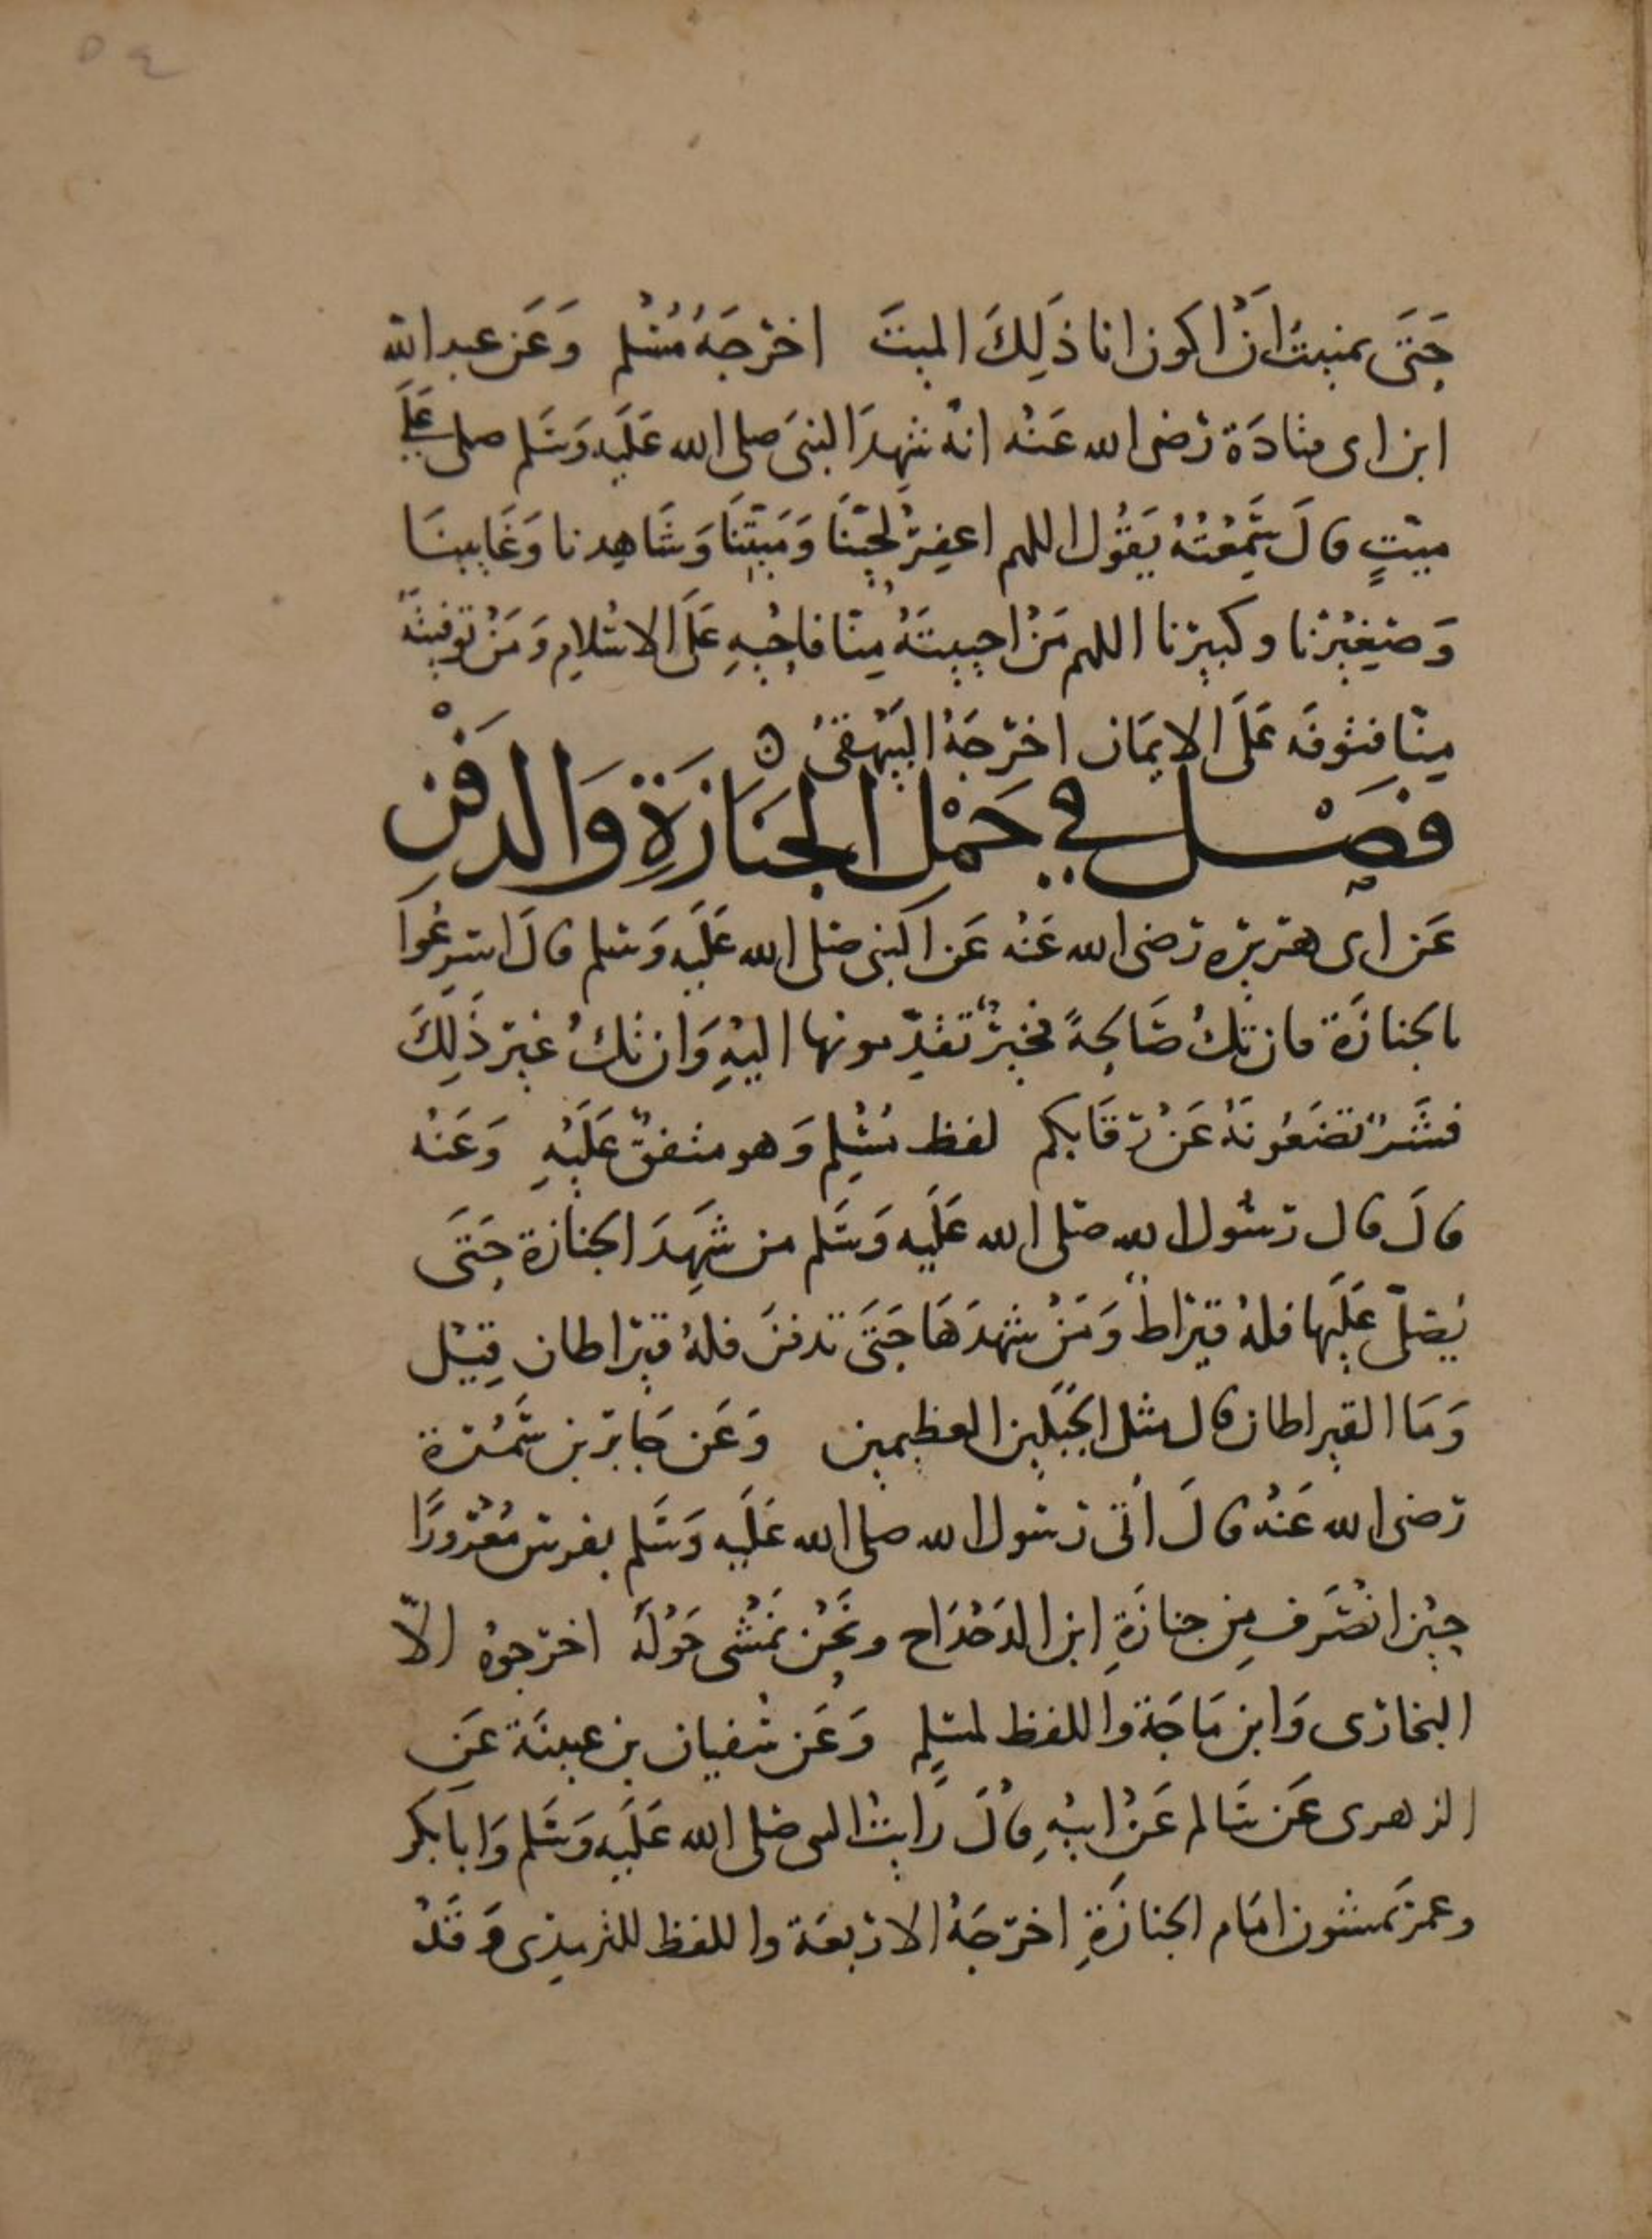 ٥٤
حَتَّى تمنيتُ أنْ اكون انا ذَلِكَ الميتَ اخرَجَهُ مُسْلم وَعَن عبد الله
ابن ابى قتادَة رَضى الله عَنْه انهُ شهِدَ النبىَ صلى الله عَلَيه وَسَلم صلى عَلَى
ميّتٍ قالَ سَمِعْتُهُ يَقُول اللهم اغفِرْ لحيّنَا وَمَيّتِنَا وَشَاهِدنا وَغَايبنَا
وَصَغِيْرنا وكبيرنا اللهم مَنْ احييتَهُ مِنّا فاحْيِهِ عَلَى الاسْلامِ وَمَنْ توفيتَهُ
مِنّا فتوفَه عَلَى الايمَان اخرَجَهُ البَيْهقىُ ٥
فَصْل في حَمْل الجنَازَةِ وَالدفَنْ
عَن ابى هريره رَضى الله عَنْه عَن النبى صَلى الله عَلَيه وَسَلم قالَ اسرِعُوا
بالجنازَة فان تكُ صَالحِةً فخيرٌ تقدِّمونها اليْهِ وَان تكُ غيرَ ذَلِكَ
فشَرٌ تضَعُونَهُ عَنْ رقَابكم لفظ مُسْلِم وَهو متفقٌ عَلَيْهِ وَعَنْه
قالَ قال رَسُول الله صَلى الله عَلَيه وَسَلم من شَهِدَ الجنازة حَتَى
يُصَلّى عَلَيها فلهُ قيرَاطٌ وَمَنْ شهدَهَا حَتَى تدفنَ فلهُ قيرَاطان قِيْل
وَمَا القيراطان قال مثل الجَبَلَين العظيمين وَعَن جَابر بن سَمُرة
رَضى الله عَنْه قالَ أتى رَسول الله صلى الله عَلَيه وَسَلم بفرسٍ مُعْرَورًا
حِيْن انصَرف مِن جنازَةِ ابن الدَحْدَاح ونَحْن نَمْشى حَوْلَهُ اخرجوهُ الاّ
البخارَى وَابن مَاجَة واللفظ لمسْلِم وَعَن سُفيان بن عيينَة عَن
الزهرى عَن سَالم عَنْ ابيْهِ قالَ رَايتُ النبى صَلى الله عَلَيه وَسَلم وَابابكر
وعمرَ يمشون امَام الجنازَةِ اخرَجَهُ الارْبعَة واللفظ للترمِذى وَقَدْ